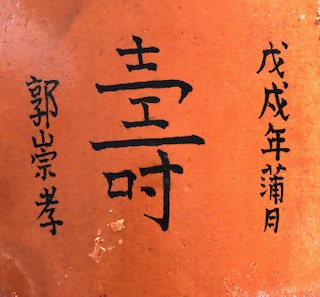 戊戌年蒲月
壽
郭崇孝